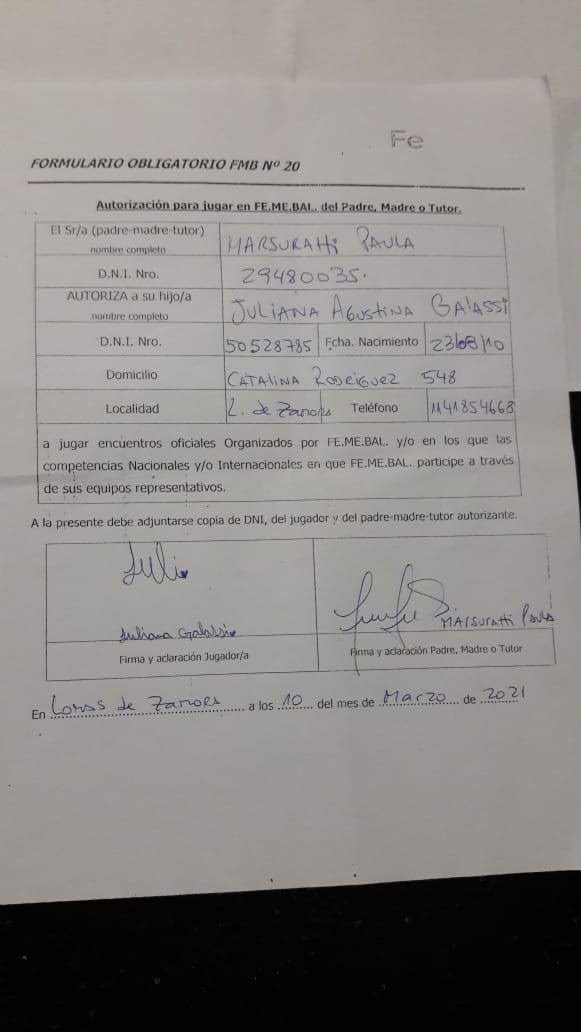 Fe
FORMULARIO OBLIGATORIO FMB Nº 20
Autorización para jugar en FE.ME.BAL. del Padre, Madre o Tutor.
El Sr/a (padre-madre-tutor) nombre completo MARSURATTI PAULA
D.N.I. Nro. 29480035.
AUTORIZA a su hijo/a nombre completo JULIANA AGUSTINA GALASSI
D.N.I. Nro. 50528785 Fcha. Nacimiento 23/08/10
Domicilio CATALINA RODRIGUEZ 548
Localidad L. de Zamora Teléfono 1141854663
a jugar encuentros oficiales Organizados por FE.ME.BAL. y/o en los que las
competencias Nacionales y/o Internacionales en que FE.ME.BAL. participe a través
de sus equipos representativos.
A la presente debe adjuntarse copia de DNI, del jugador y del padre-madre-tutor autorizante.
Juli
Juliana Galassi MARSURATTI PAULA
Firma y aclaración Jugador/a Firma y aclaración Padre, Madre o Tutor
En Lomas de Zamora a los 10 del mes de Marzo de 2021